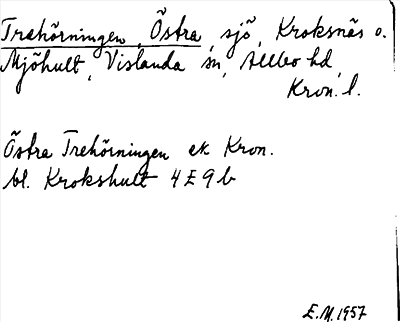 Trehörningen, Östra, sjö, Kroksnäs o.
Mjöhult, Vislanda sn, Allbo hd,
Kron. l.
Östra Trehörningen ek Kron.
bl. Krokshult 4E9b
E.M. 1957